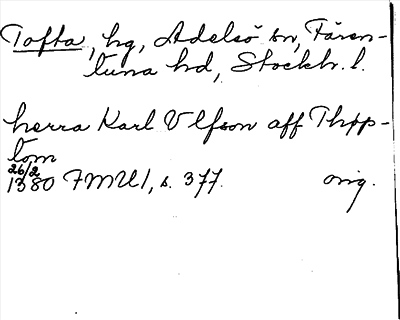 Tofta, hg, Adelsö sn, Fären-
tuna hd, Stockh. l.
herra Karl Ulfson aff Thop-
tom
26/2
1380 FMU 1, s. 377. orig.